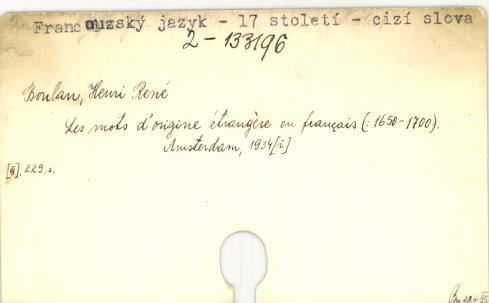 Francouzský jazyk - 17 století - cizí slova
2-133196
Boulan, Henri René
Les mots d'origine étrangère en français (: 1650-1700).
Amsterdam, 1934
229 s.